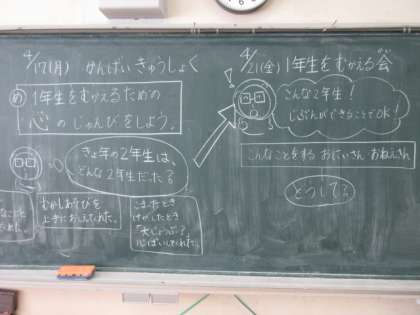 4/17(月) かんぱい きゅうしょく
め 1年生をむかえるための
心のじゅんびをしよう。
きょ年の2年生は、
どんな2年生だった?
むかしあそびを
上手におしえてくれた。
こまったとき
けがしたとき
「大じょうぶ?」
心ぱいしてくれた。
4/21(金) 1年生をむかえる会
!
こんな2年生!
じぶんができることでOK!
こんなことをする おにいさん おねえさん
どうして?